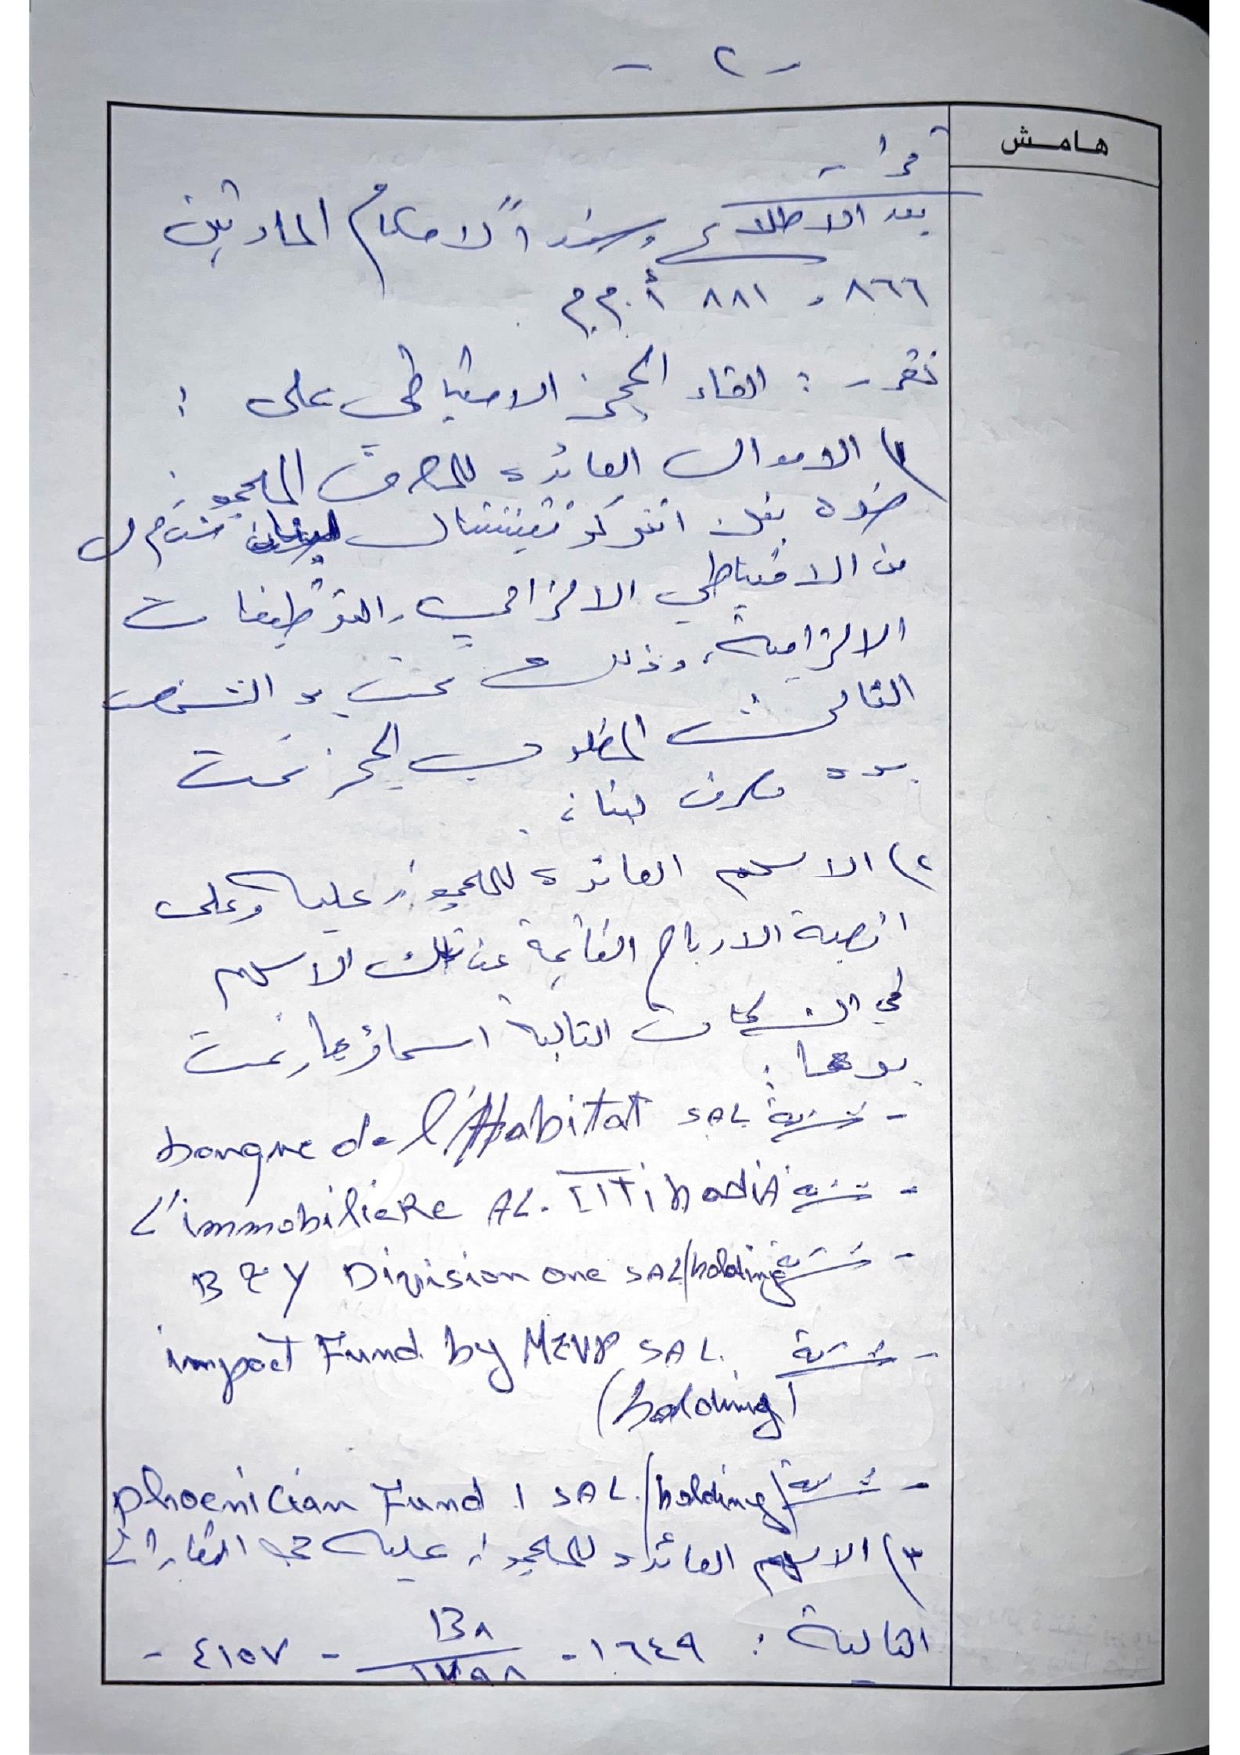 - ٢ -
هامش
قرار
بعد الاطلاع وسنداً لاحكام المادتين
٨٦٦ و ٨٨١ أ.م.م
نقرر : القاء الحجز الاحتياطي على :
١) الاموال العائدة للمصرف المحجوز
ضده بنك انتركونتيننتال لبنان ش م ل
من الاحتياطي الالزامي والتوظيفات
الالزامية، وذلك تحت يد الشخص
الثالث المطلوب الحجز تحت
يده مصرف لبنان.
٢) الاسهم العائدة للمحجوز عليه وعلى
انصبة الارباح الناتجة عن تلك الاسهم
في الشركات التالية اسماؤها وتحت
يدها :
- شركة banque de l'Habitat SAL
- شركة L'immobilière AL. ITTihadiA
- شركة B & Y Division one SAL/holding
- شركة impact Fund by MEVP SAL
(holding)
- شركة phoenician Fund 1 SAL/holding
٣) الاسهم العائدة للمحجوز عليه في العقارات
التالية : ١٦٤٩ - B٨/١٧٩٨ - ٤١٥٧ -